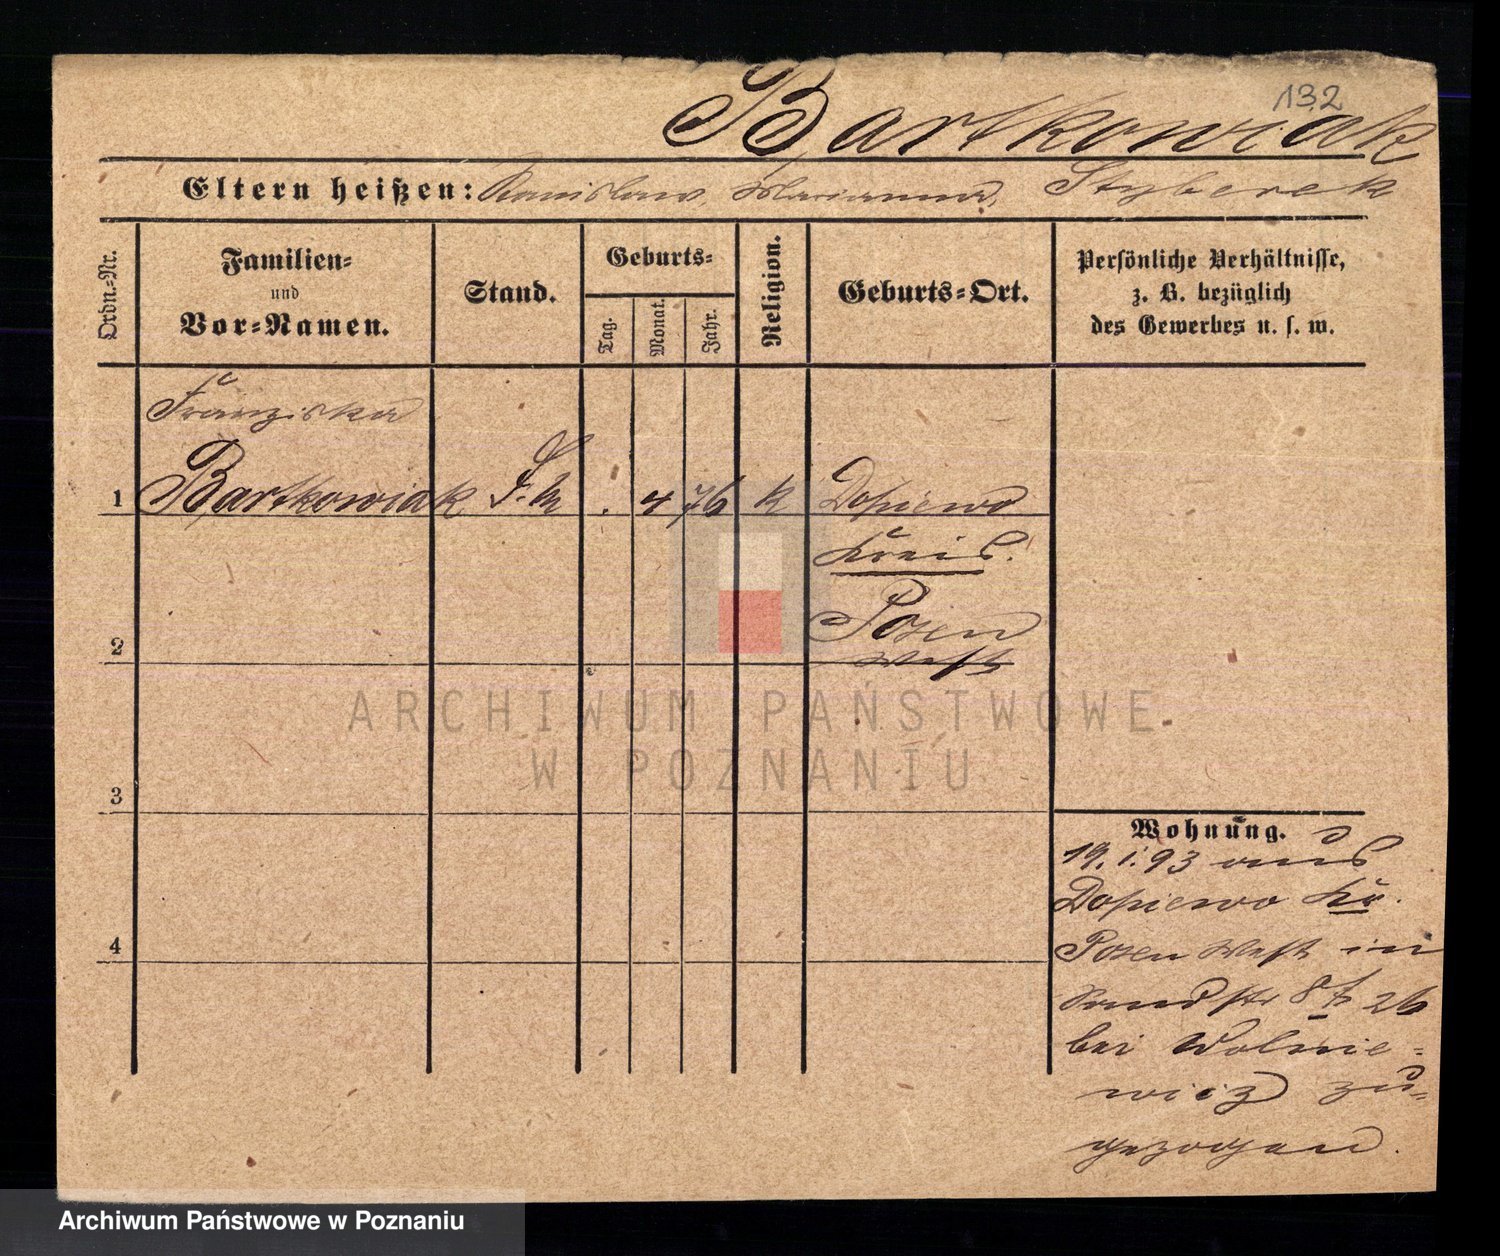 132
Bartkowiak
Eltern heißen: Stanislaus, Marianna, Styberek
Ordn.-Nr.
Familien-
und
Vor-Namen.
Stand.
Geburts-
Tag.
Monat.
Jahr.
Religion.
Geburts-Ort.
Persönliche Verhältnisse,
z. B. bezüglich
des Gewerbes u. s. w.
Franziska
1 Bartkowiak . 4 76 k Dopiewo
Kreis.
Posen
2 West
3
4
Wohnung.
19.1.93 aus
Dopiewo Kr.
Posen West in
8 26
bei Wolnie-
wicz zu-
gezogen.
ARCHIWUM PAŃSTWOWE
W POZNANIU
Archiwum Państwowe w Poznaniu